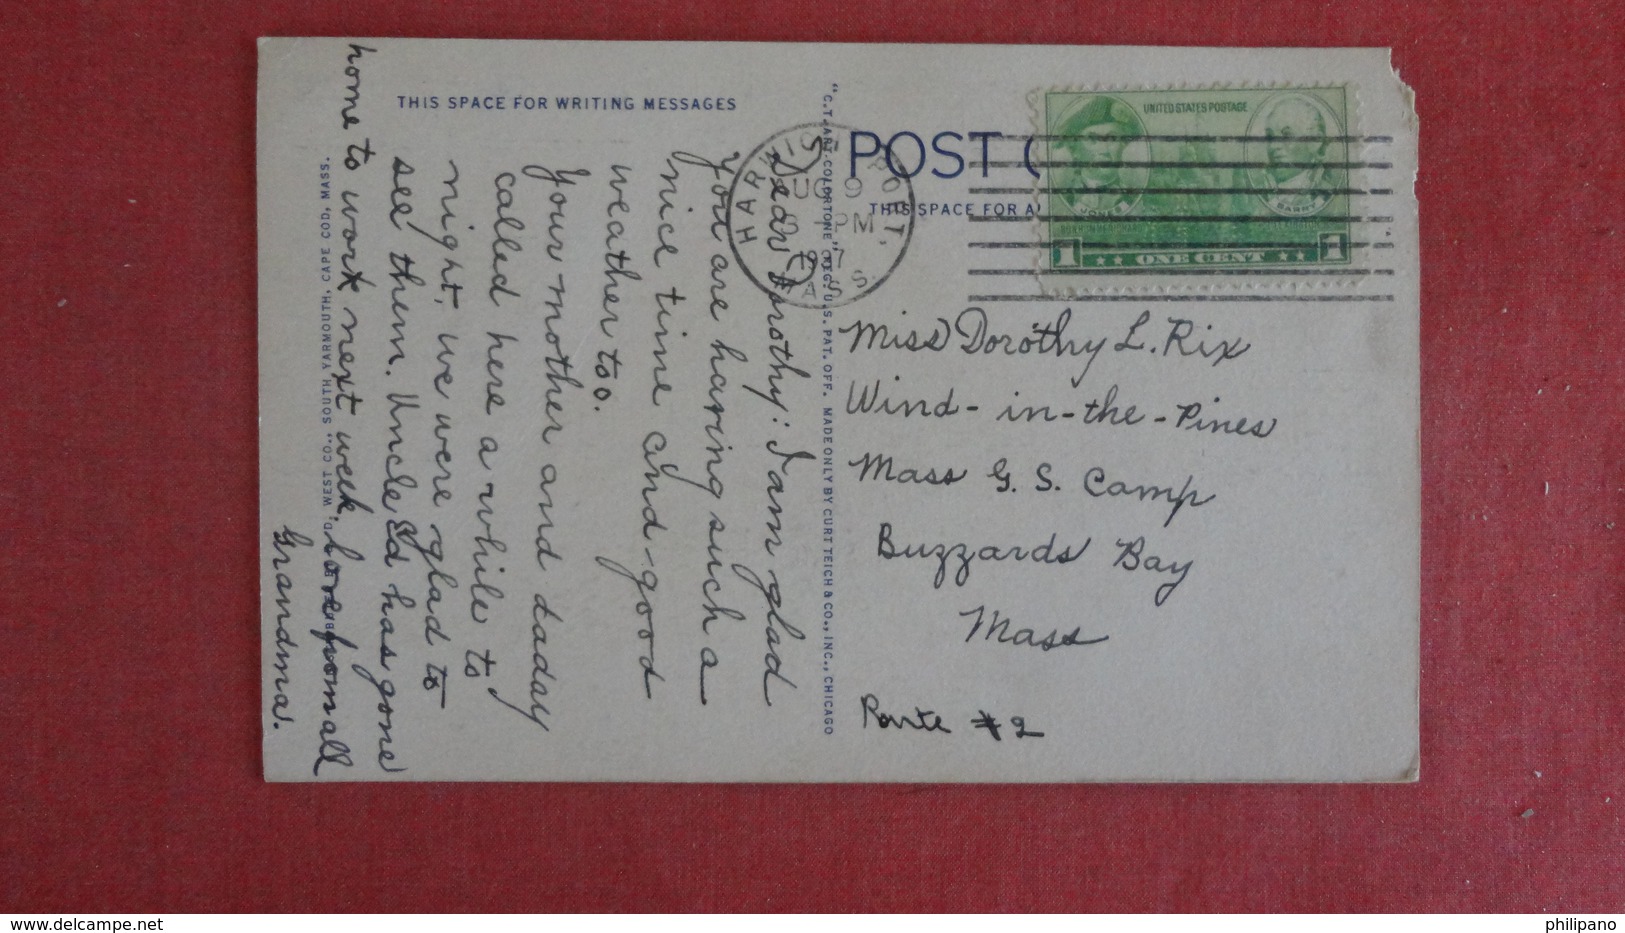 THIS SPACE FOR WRITING MESSAGES
Dear Dorothy: I am glad
You are having such a
nice time and good
weather too.
Your mother and daddy
called here a while to
night. we were glad to
see them. Uncle Ed has gone
home to work next week, love from all
Grandma.
WEST CO., SOUTH YARMOUTH, CAPE COD, MASS.
"C.T. ART-COLORTONE" REG. U.S. PAT. OFF. MADE ONLY BY CURT TEICH & CO., INC., CHICAGO
POST
THIS SPACE FOR A
HARWICH PORT,
9
PM
1937
MASS.
UNITED STATES POSTAGE
JONES
BARRY
1 ONE CENT 1
Miss Dorothy L. Rix
Wind-in-the-Pines
Mass G. S. Camp
Buzzards Bay
Mass
Route #2
www.delcampe.net
philipano